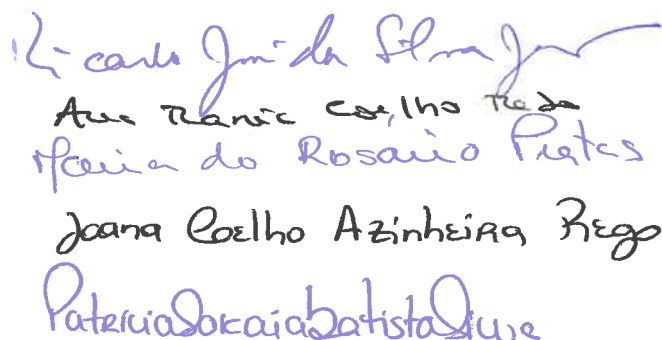 Ricardo José da Silva
Ana Maria Coelho
Maria do Rosario Pratas
Joana Coelho Azinheira Rego
Patricia Soraia Batista